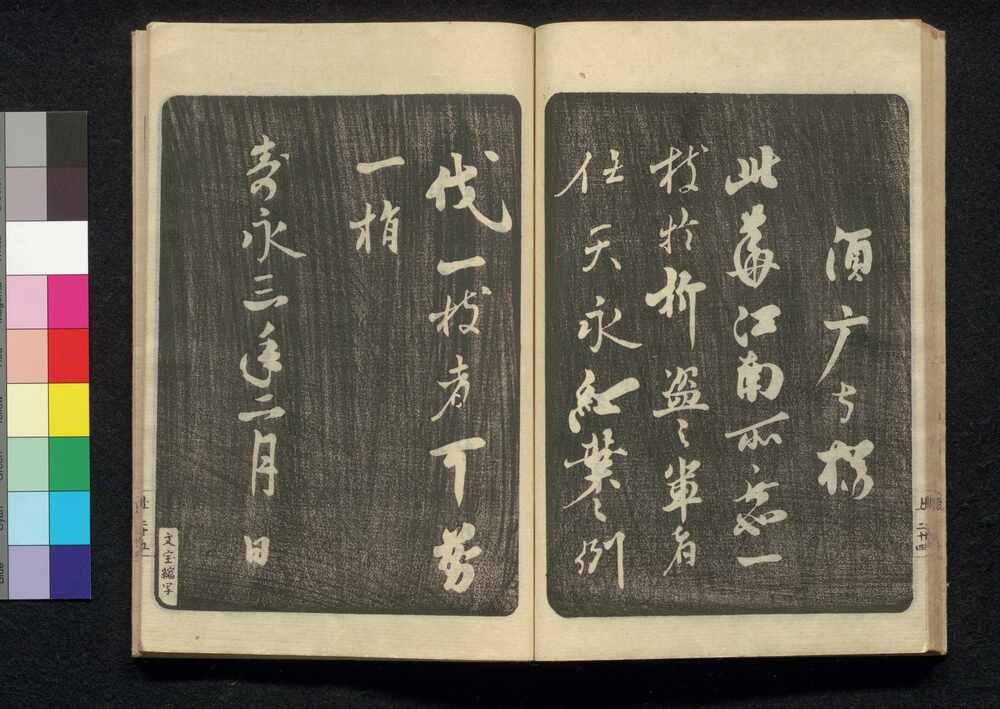 須广寺桜
此華江南所無一
枝於折盗之輩者
任天永紅葉之例
伐一枝者可剪
一指
寿永三年二月 日
文宝縮写
上 二十四